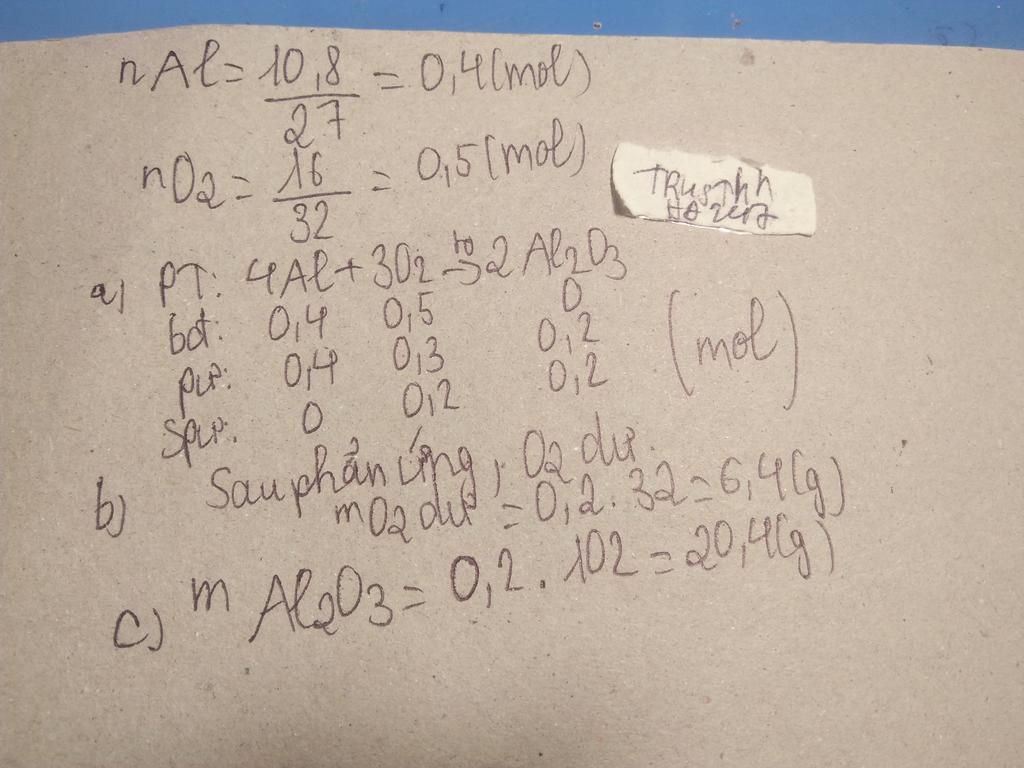 nAl = 10,8 / 27 = 0,4 (mol)
nO2 = 16 / 32 = 0,5 (mol)
a) PT: 4Al + 3O2 to→ 2Al2O3
bđ: 0,4 0,5 0
pư: 0,4 0,3 0,2
spư: 0 0,2 0,2
(mol)
b) Sau phản ứng, O2 dư.
mO2 dư = 0,2 . 32 = 6,4 (g)
c) m Al2O3 = 0,2 . 102 = 20,4 (g)